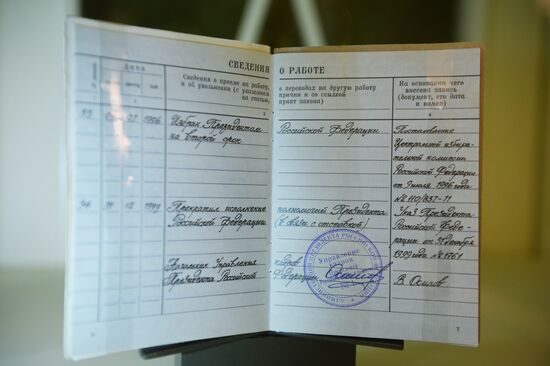 СВЕДЕНИЯ О РАБОТЕ
Дата
Сведения о приеме на работу,
и об увольнении (с указанием
на статью,
о переводах на другую работу
причин и со ссылкой
пункт закона)
На основании чего
внесена запись
(документ, его дата
и номер)
4
07 1996
Избран Президентом
на второй срок
Российской Федерации
Постановление
Центральной избира-
тельной комиссии
Российской Федерации
от 9 июля 1996 года
№ 110/837-II
31 12
Прекратил исполнение
Российской Федерации
полномочий Президента
(в связи с отставкой)
Указ Президента
Российской Феде-
рации от 31 декабря
1999 года № 1761
Начальник Управления
Президента Российской
кадров
Федерации
В. Осипов
Управление
кадров
7